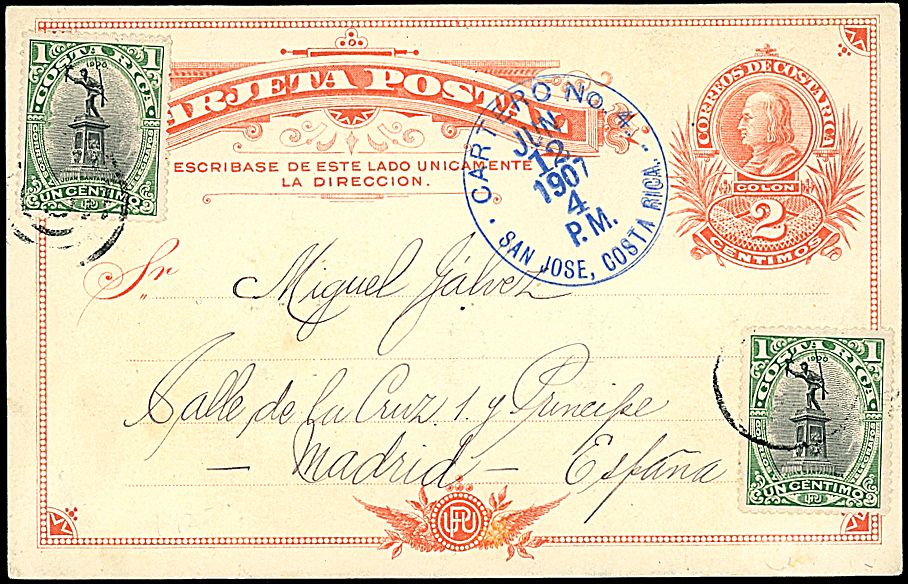 1 1
COSTA RICA
1900
CORREOS Y TELEGRAFOS
JUAN SANTAMARIA
UN CENTIMO
UPU
TARJETA POSTAL
ESCRIBASE DE ESTE LADO UNICAMENTE
LA DIRECCION.
CARTERO No. 4.
JUN
12
1907
4
P.M.
SAN JOSE, COSTA RICA.
CORREOS DE COSTA RICA
COLON
2
CENTIMOS
Sr Miguel Gálvez
Calle de la Cruz 1. y Principe
— Madrid — España
1 1
COSTA RICA
1900
CORREOS Y TELEGRAFOS
JUAN SANTAMARIA
UN CENTIMO
UPU
UPU